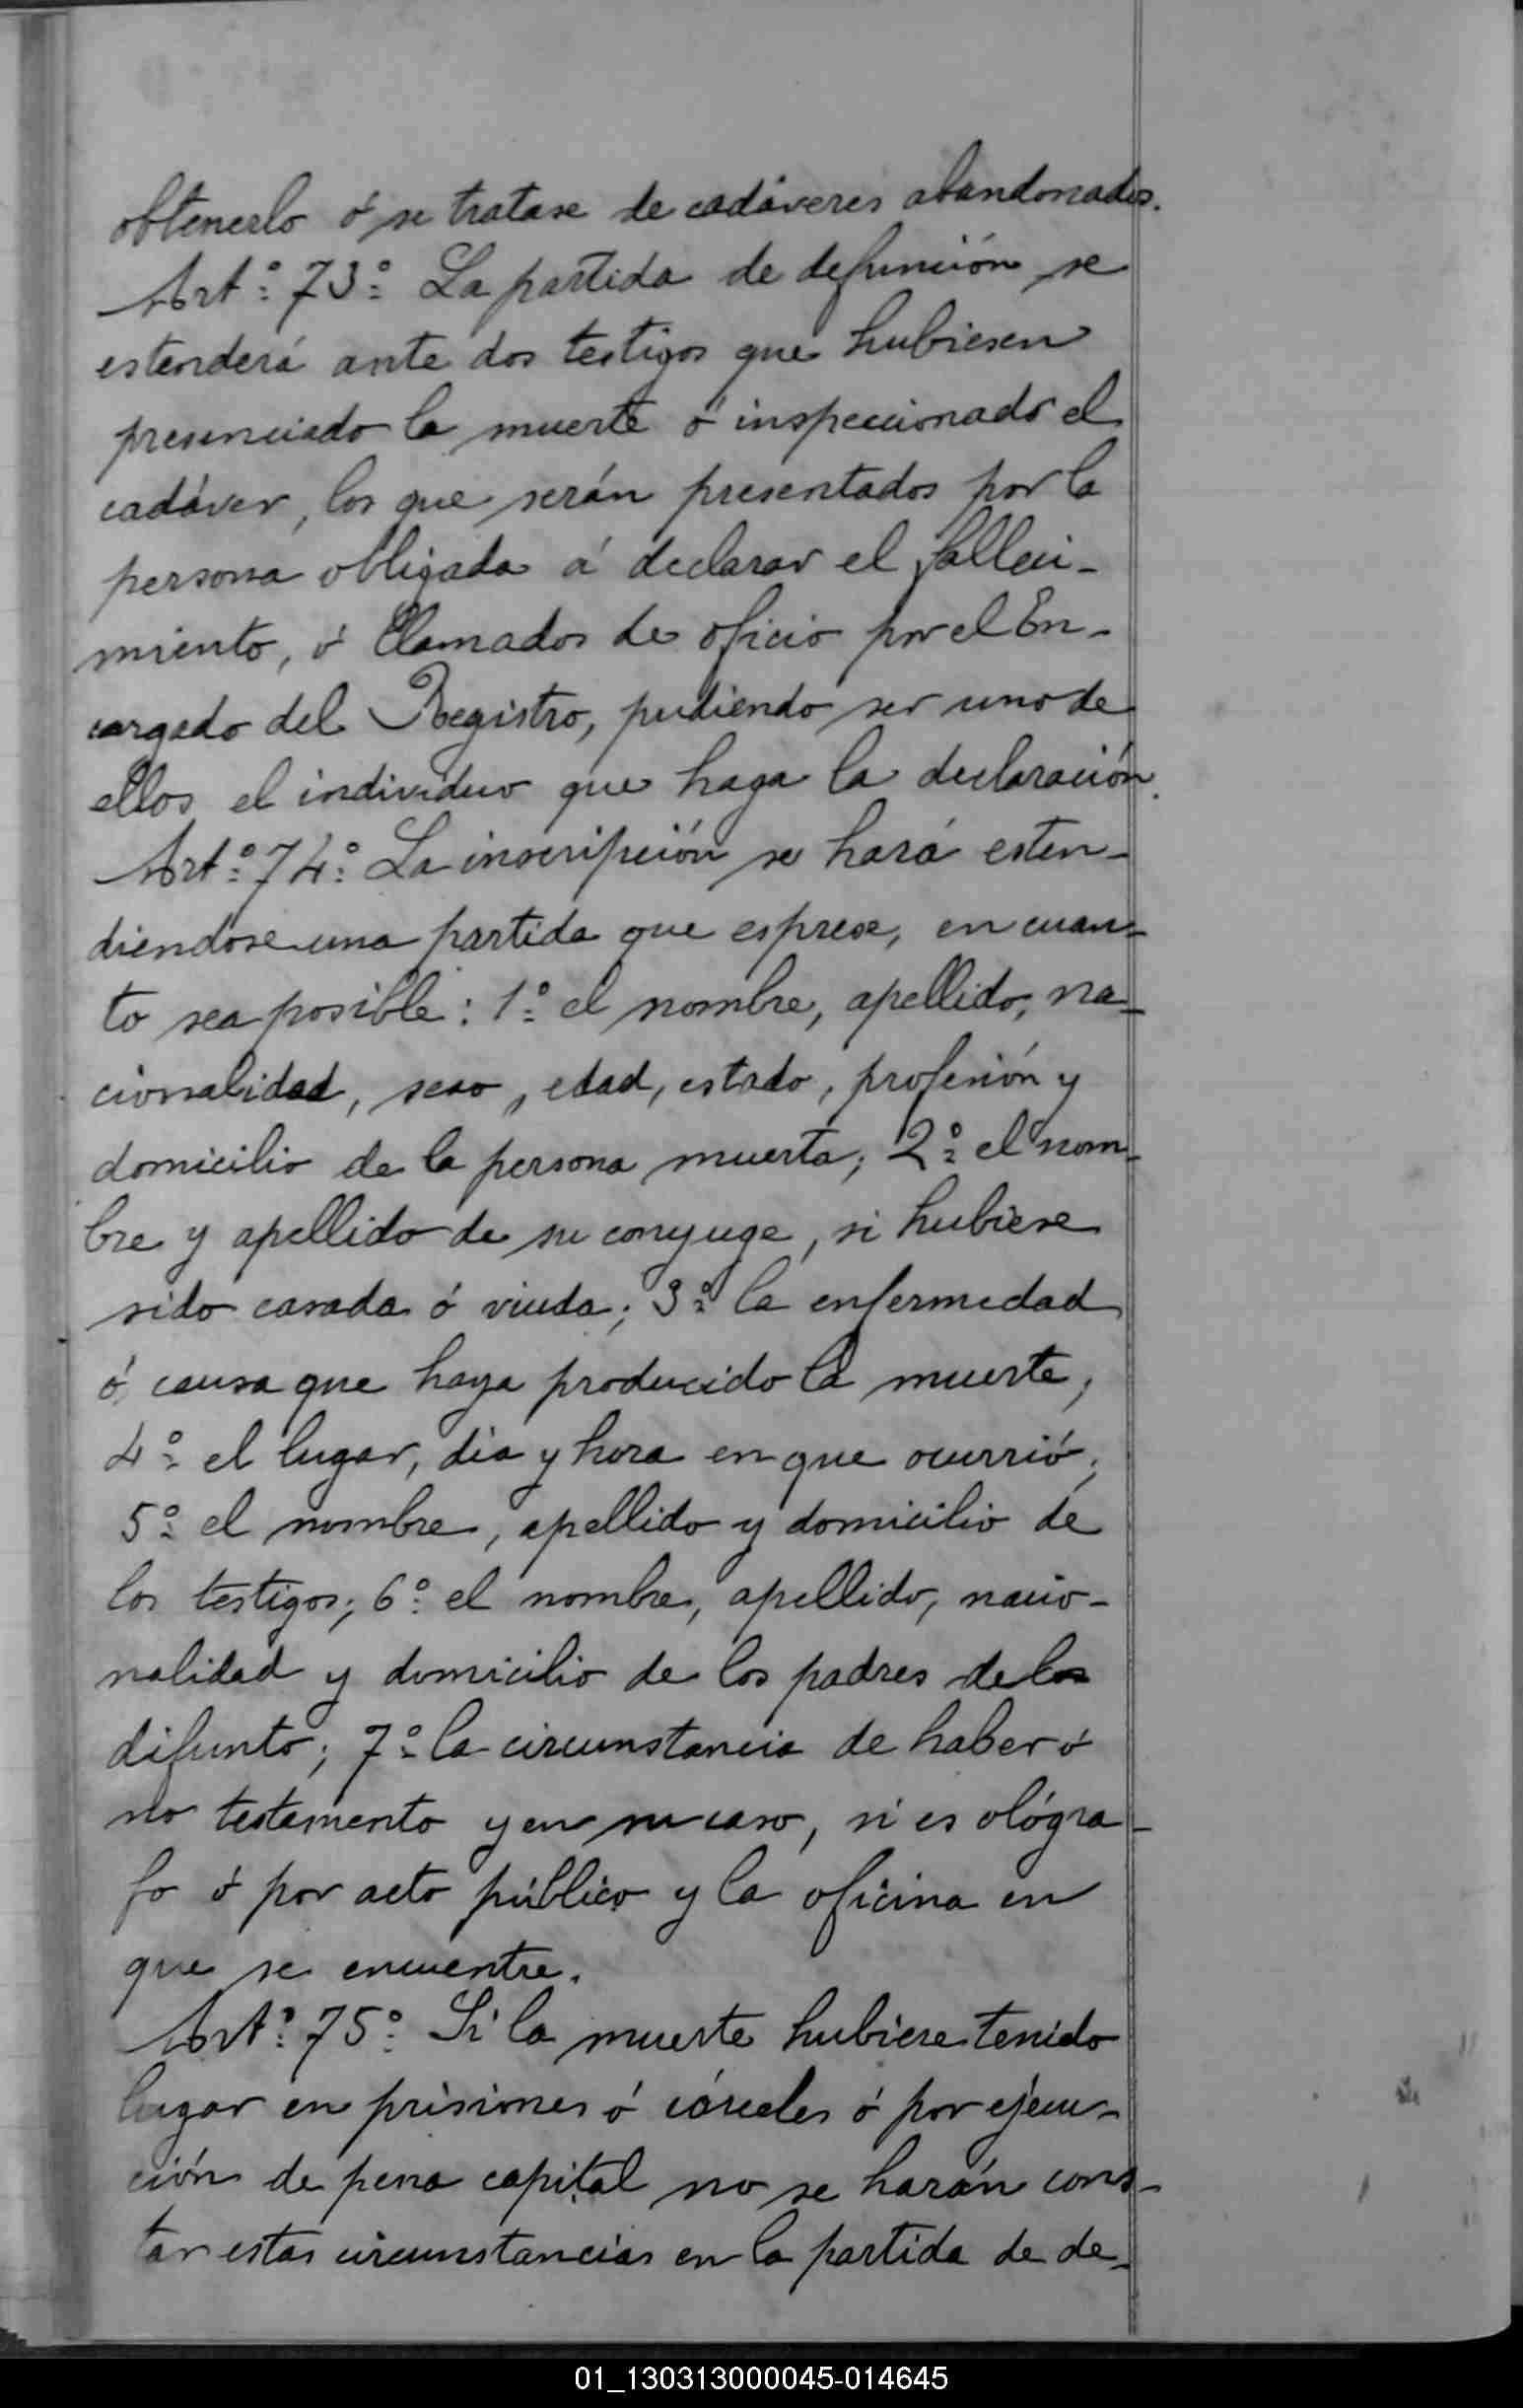 obtenerlo ó se tratase de cadáveres abandonados.
Art.º 73.º La partida de defunción se
estenderá ante dos testigos que hubiesen
presenciado la muerte ó inspeccionado el
cadáver, los que serán presentados por la
persona obligada á declarar el falleci-
miento, ó llamados de oficio por el En-
cargado del Registro, pudiendo ser uno de
ellos el individuo que haga la declaración.
Art.º 74.º La inscripción se hará esten-
diendose una partida que esprese, en cuan-
to sea posible: 1.º el nombre, apellido, na-
cionalidad, sexo, edad, estado, profesión y
domicilio de la persona muerta; 2.º el nom-
bre y apellido de su conyuge, si hubiese
sido casada ó viuda; 3.º la enfermedad
ó causa que haya producido la muerte;
4.º el lugar, dia y hora en que ocurrió;
5.º el nombre, apellido y domicilio de
los testigos; 6.º el nombre, apellido, nacio-
nalidad y domicilio de los padres de los
difunto; 7.º la circunstancia de haber ó
no testamento y en su caso, si es ológra-
fo ó por acto público y la oficina en
que se encuentre.
Art.º 75.º Si la muerte hubiere tenido
lugar en prisiones ó cárceles ó por ejecu-
ción de pena capital no se harán cons-
tar estas circunstancias en la partida de de-
01_130313000045-014645